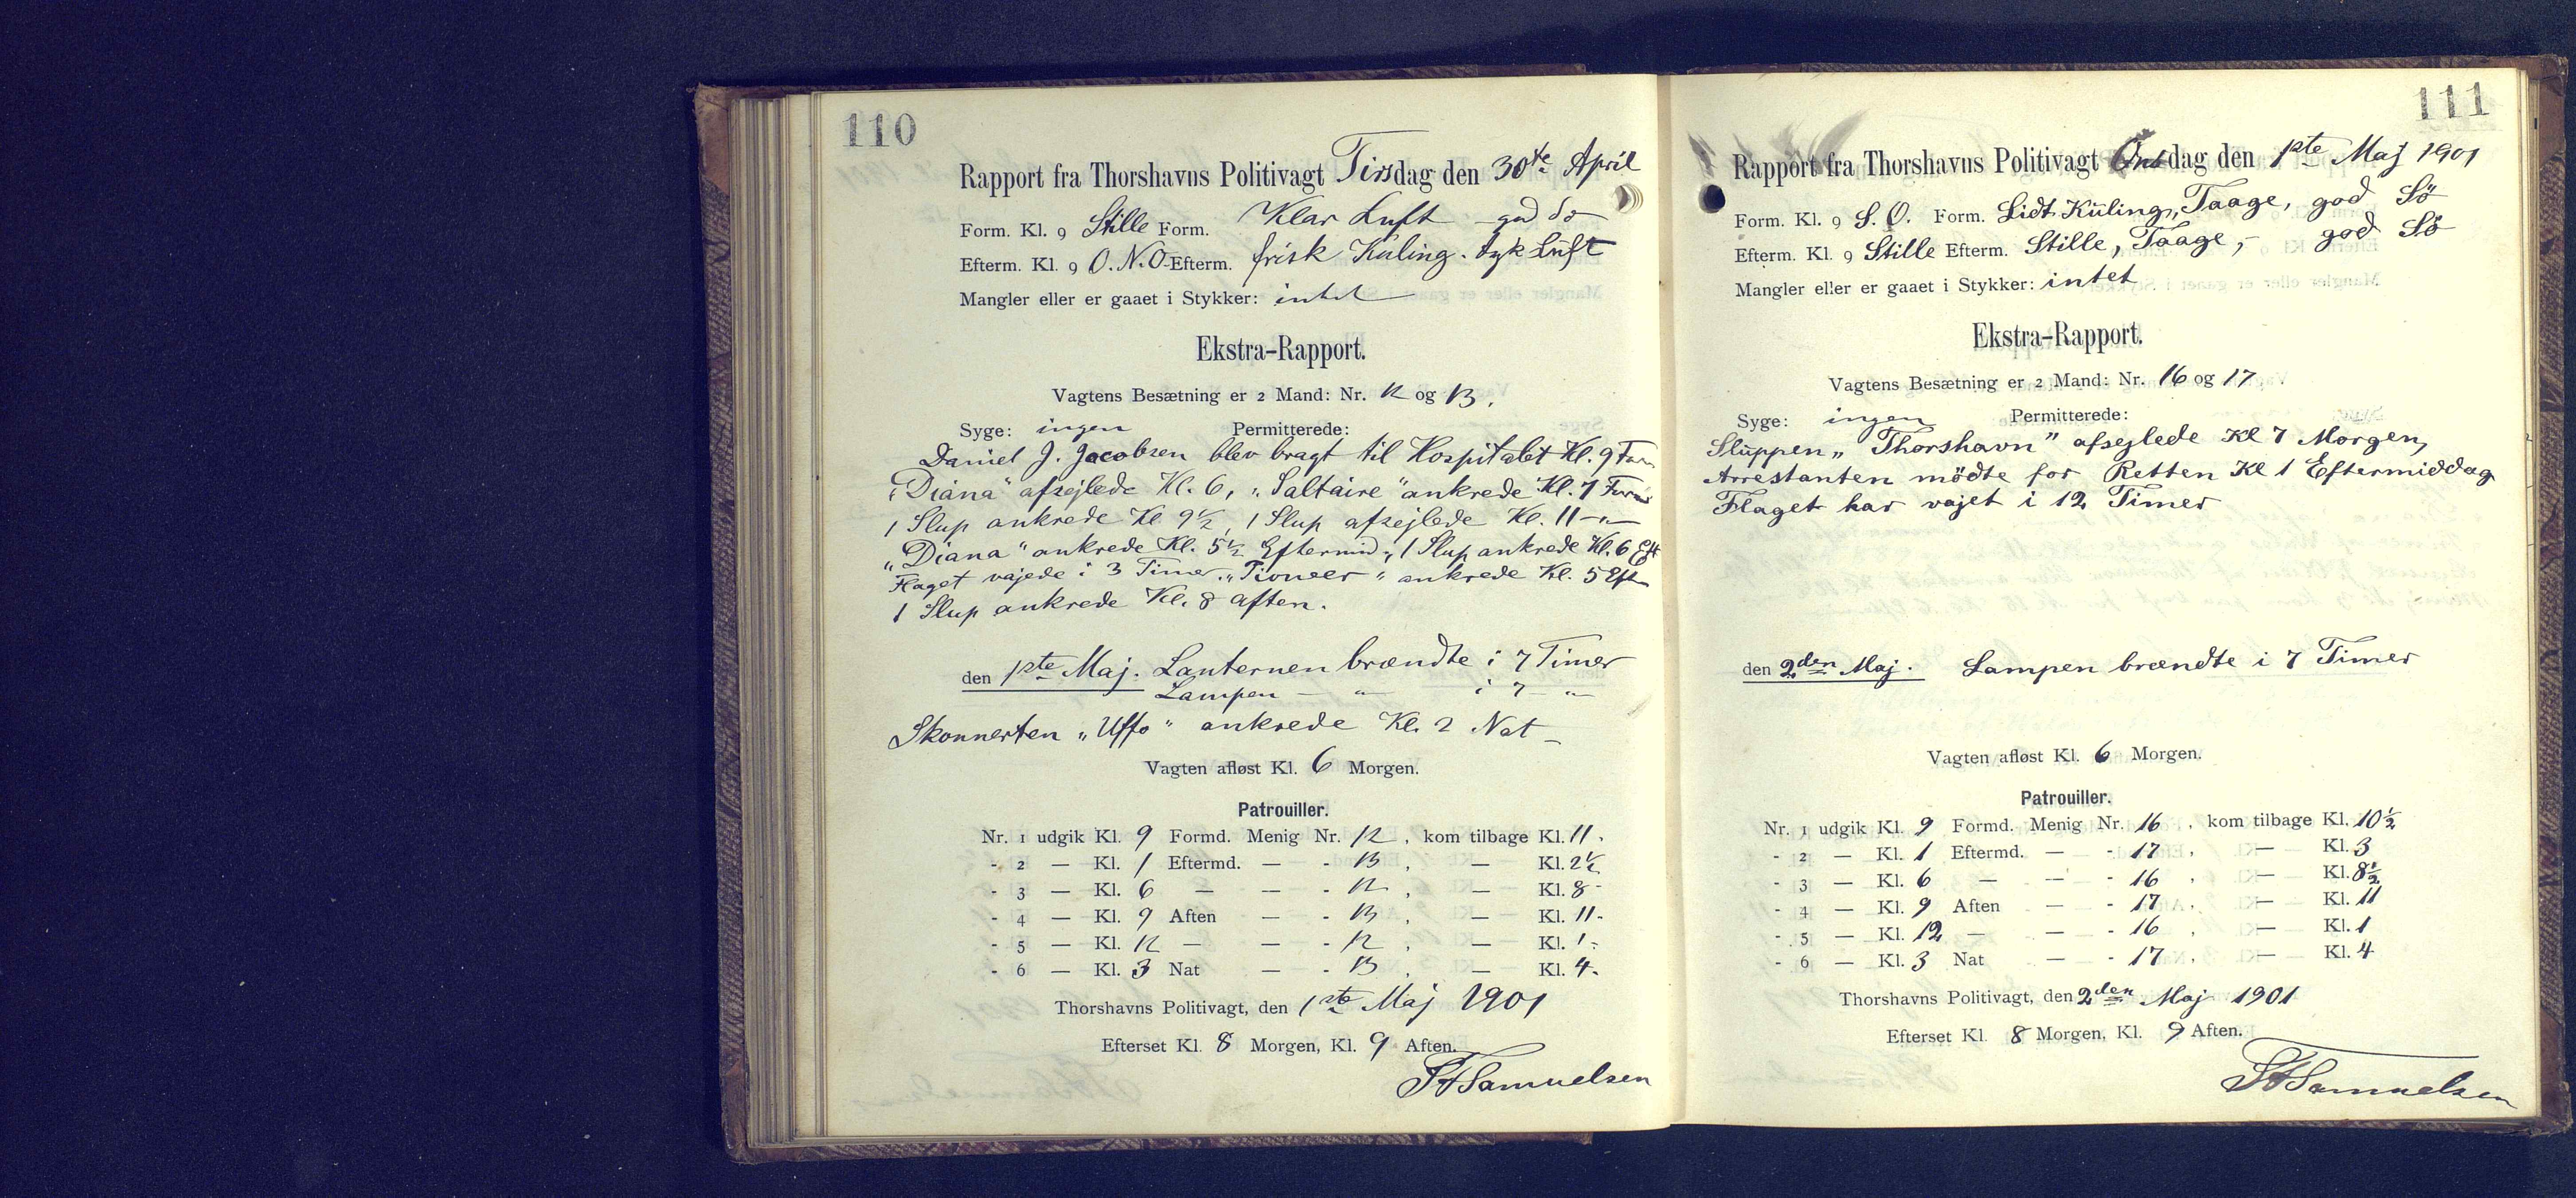 110
Rapport fra Thorshavns Politivagt Tirsdag den 30te April
Form. Kl. 9 Stille Form. Klar Luft god Sö
Efterm. Kl. 9 O.N.O. Efterm. frisk Kuling. tyk Luft
Mangler eller er gaaet i Stykker: intet
Ekstra-Rapport.
Vagtens Besætning er 2 Mand: Nr. 12 og 13.
Syge: ingen Permitterede:
Daniel J. Jacobsen blev bragt til Hospitalet Kl. 9 Form
„Diana" afsejlede Kl. 6, „Saltaire" ankrede Kl. 7 Form
1 Slup ankrede Kl 9½, 1 Slup afsejlede Kl. 11 -"-
„Diana" ankrede Kl. 5½ Eftermid., 1 Slup ankrede Kl. 6 Eft
Flaget vajede i 3 Timer. „Pioneer" ankrede Kl. 5 Eftm
1 Slup ankrede Kl. 8 aften.
den 1ste Maj. Lanternen brændte i 7 Timer
Lampen - " - i 7 - "
Skonnerten „Uffo" ankrede Kl. 2 Nat -
Vagten afløst Kl. 6 Morgen.
Patrouiller.
Nr. 1 udgik Kl. 9 Formd. Menig Nr. 12, kom tilbage Kl. 11.
- 2 — Kl. 1 Eftermd. — - 13, — Kl. 2½
- 3 — Kl. 6 — — - 12, — Kl. 8 -
- 4 — Kl. 9 Aften — - 13, — Kl. 11 -
- 5 — Kl. 12 — — - 12, — Kl. 1 -
- 6 — Kl. 3 Nat — - 13, — Kl. 4 -
Thorshavns Politivagt, den 1ste Maj 1901
Efterset Kl. 8 Morgen, Kl. 9 Aften.
Samuelsen
111
Rapport fra Thorshavns Politivagt Onsdag den 1ste Maj 1901
Form. Kl. 9 S.O. Form. Lidt Küling, Taage, god Sö
Efterm. Kl. 9 Stille Efterm. Stille, Taage, - god Sö
Mangler eller er gaaet i Stykker: intet
Ekstra-Rapport.
Vagtens Besætning er 2 Mand: Nr. 16 og 17
Syge: ingen Permitterede:
Sluppen „Thorshavn" afsejlede Kl 7 Morgen,
Arrestanten mödte for Retten Kl 1 Eftermiddag
Flaget har vajet i 12 Timer
den 2den Maj. Lampen brændte i 7 Timer
Vagten afløst Kl. 6 Morgen.
Patrouiller.
Nr. 1 udgik Kl. 9 Formd. Menig Nr. 16, kom tilbage Kl. 10½
- 2 — Kl. 1 Eftermd. — - 17, — Kl. 3
- 3 — Kl. 6 — — - 16, — Kl. 8½
- 4 — Kl. 9 Aften — - 17, — Kl. 11
- 5 — Kl. 12 — — - 16, — Kl. 1
- 6 — Kl. 3 Nat — - 17, — Kl. 4
Thorshavns Politivagt, den 2den Maj 1901
Efterset Kl. 8 Morgen, Kl. 9 Aften.
Samuelsen